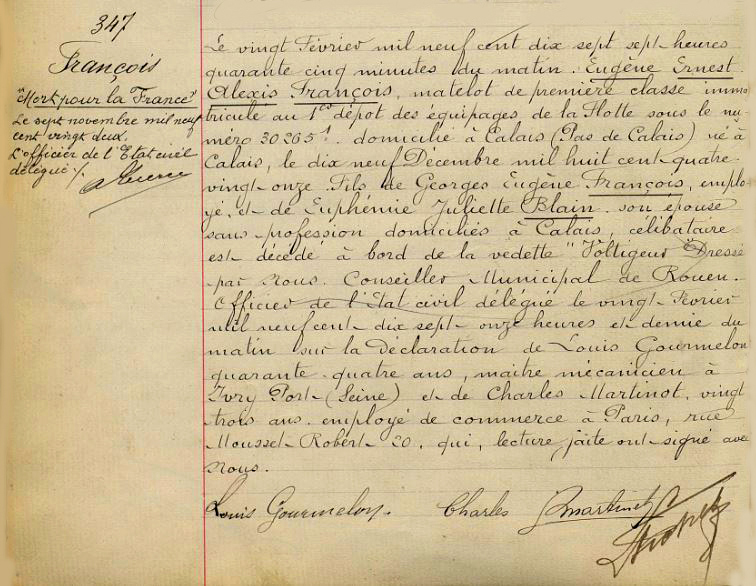 347
François
"Mort pour la France"
Le sept novembre mil neuf
cent vingt deux.
L'officier de l'Etat civil
délégué %.
Le vingt Février mil neuf cent dix sept sept heures
quarante cinq minutes du matin. Eugène Ernest
Alexis François, matelot de première classe imma
triculé au 1er dépot des équipages de la Flotte sous le nu
méro 30265¹. domicilié à Calais (Pas de Calais) né à
Calais, le dix neuf Décembre mil huit cent quatre
vingt onze. Fils de Georges Eugène François, emplo
yé, et de Euphémie Juliette Blain. son épouse
sans profession domiciliés à Calais, célibataire
est décédé à bord de la vedette "Voltigeur" Dressé
par Nous. Conseiller Municipal de Rouen.
Officier de l'Etat civil délégué le vingt Février
mil neuf cent dix sept onze heures et demie du
matin sur la Déclaration de Louis Gourmelon
quarante quatre ans, maître mécanicien à
Ivry Port (Seine) et de Charles Martinot, vingt
trois ans. employé de commerce à Paris, rue
Mousset Robert 20. qui, lecture faite ont signé avec
Nous.
Louis Gourmelon. Charles Martinot